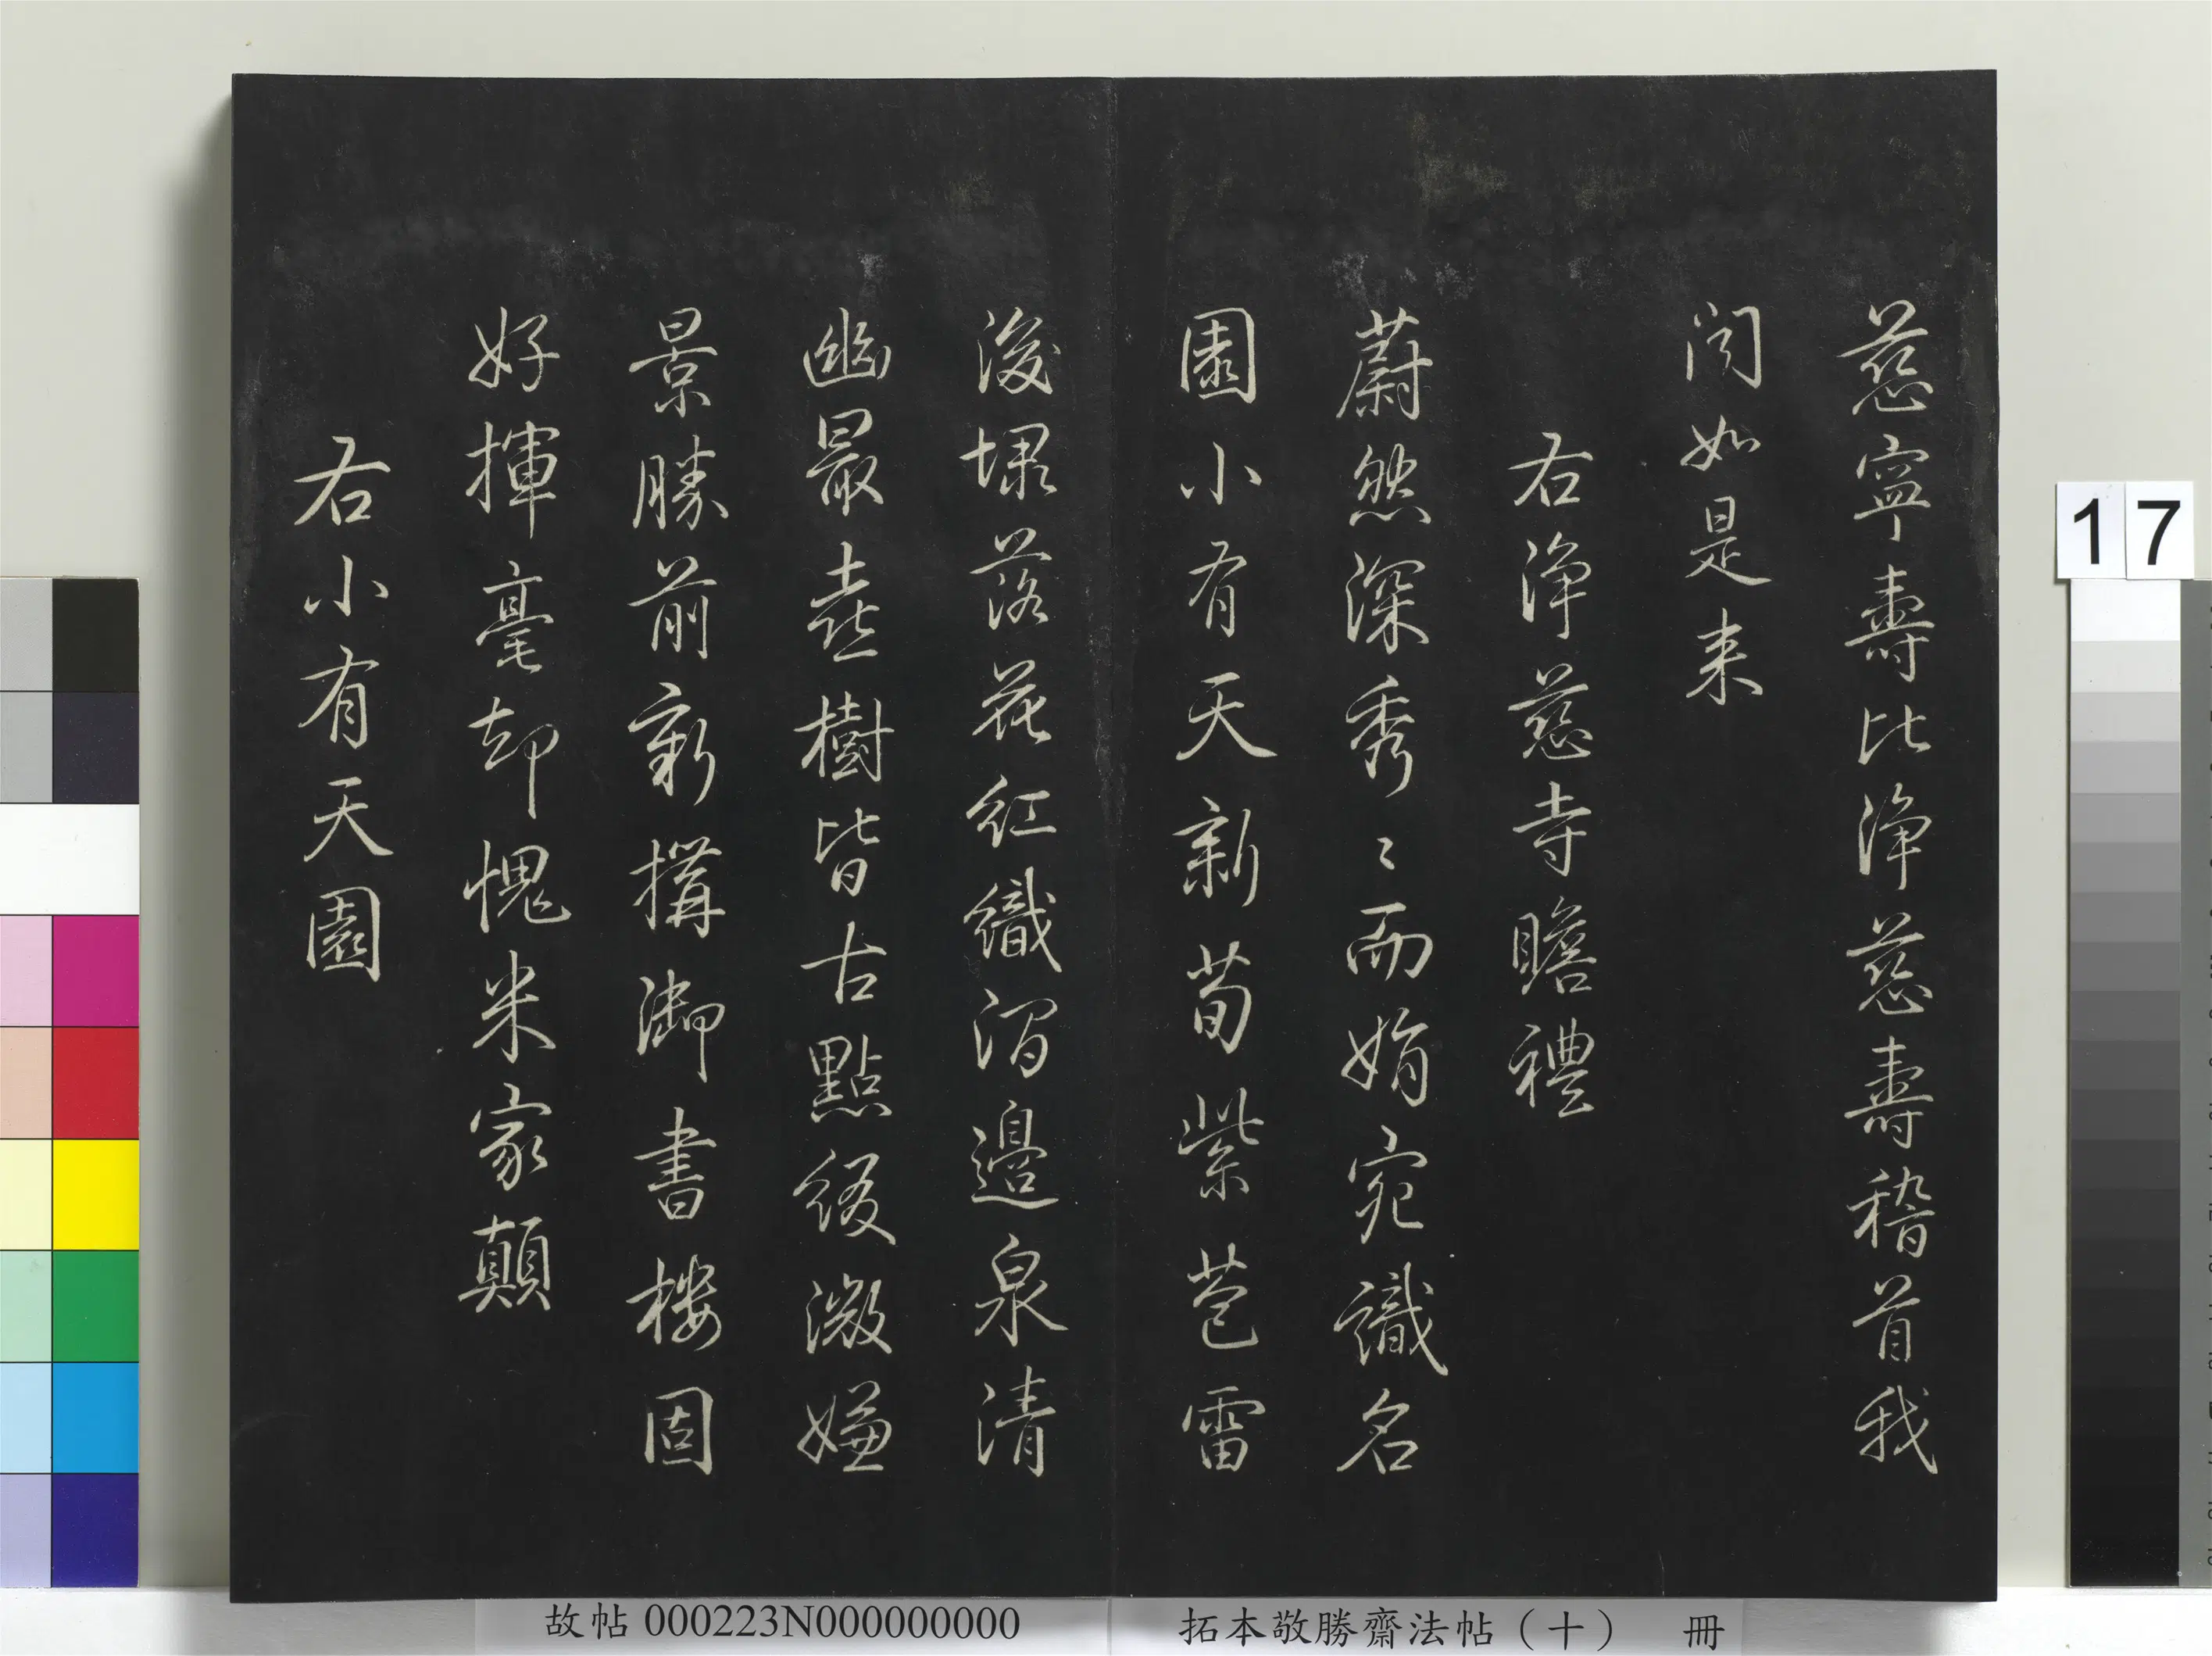 慈寧壽比淨慈壽稽首我
聞如是来
右淨慈寺瞻禮
蔚然深秀〻而娟宛識名
園小有天新筍紫苞雷
後埭落花紅織澗邊泉清
幽最喜樹皆古點綴微嫌
景勝前新搆御書樓固
好揮毫却愧米家顛
右小有天園
17
故帖 000223N000000000
拓本敬勝齋法帖（十） 冊